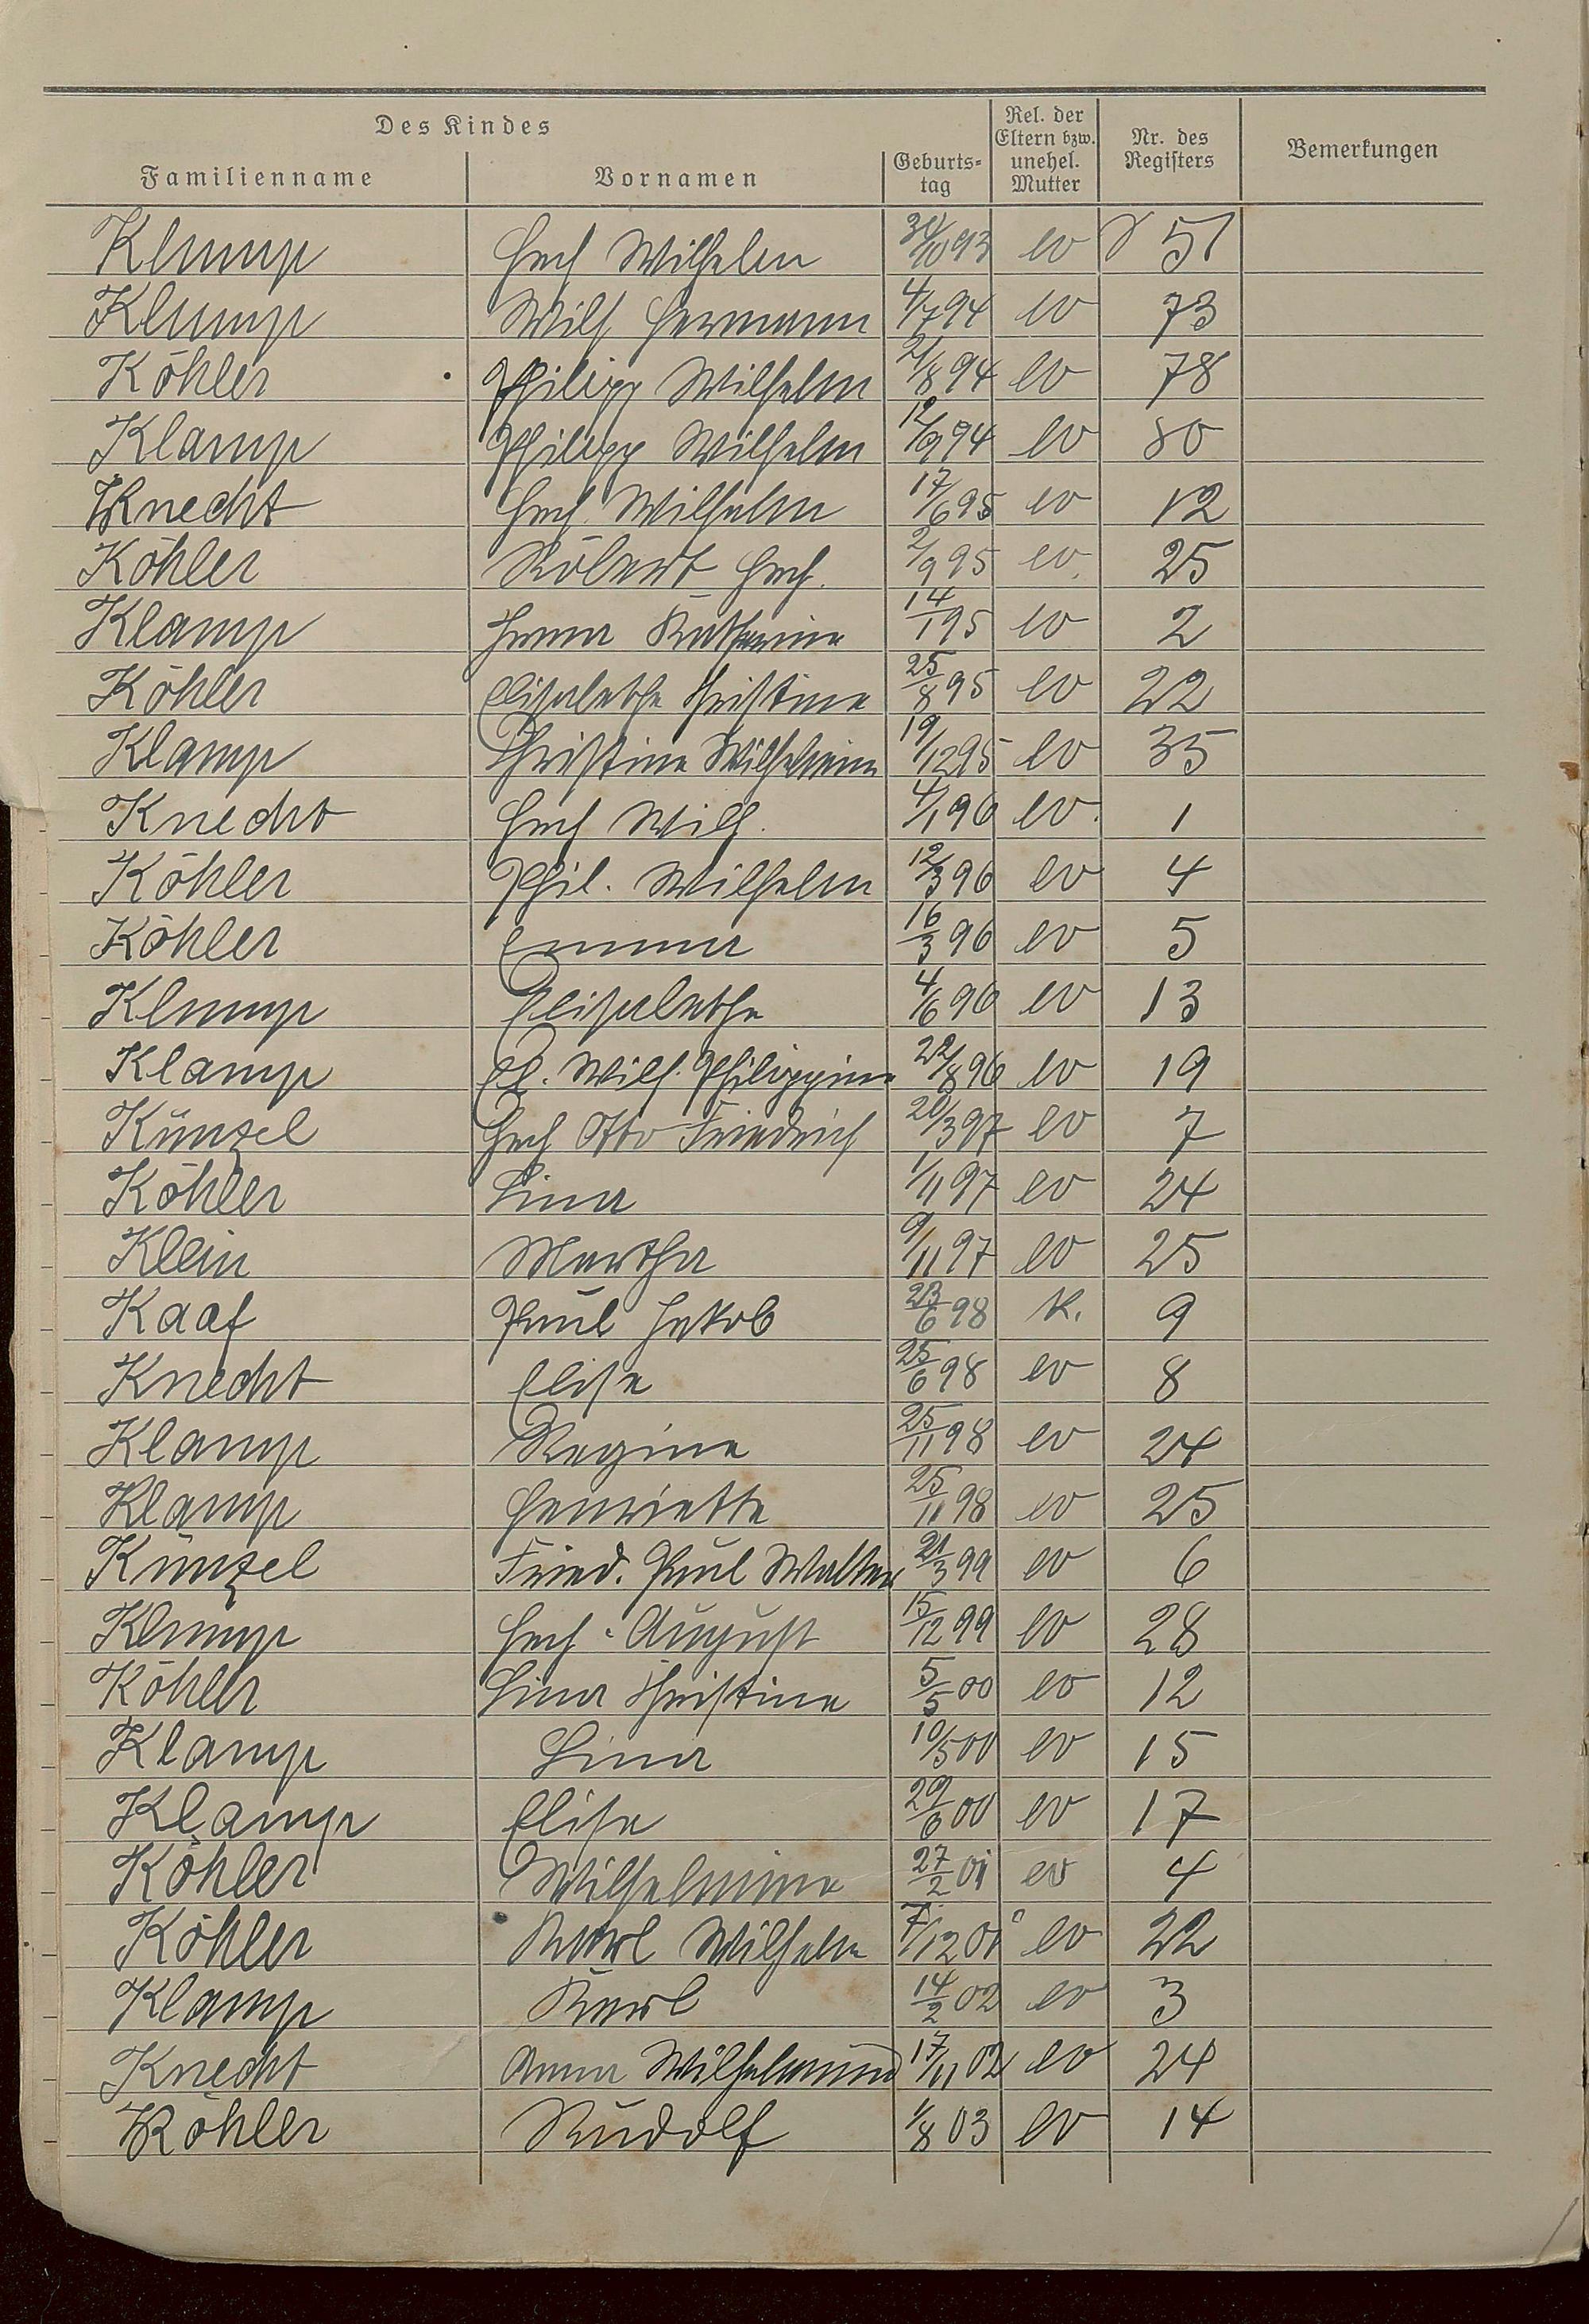 Des Kindes
Familienname Vornamen Geburts-tag Rel. der Eltern bzw. unehel. Mutter Nr. des Registers Bemerkungen
Klump Hch Wilhelm 30/10 93 ev 51
Klump Wilh Hermann 4/7 94 ev 73
Köhler Philipp Wilhelm 21/8 94 ev 78
Klamp Philipp Wilhelm 12/9 94 ev 80
Knecht Hch. Wilhelm 17/6 95 ev 12
Köhler Robert Hch. 2/9 95 ev. 25
Klamp Katharina 14/1 95 ev 2
Köhler Elisabetha Christina 25/8 95 ev 22
Klamp Christina Wilhelmina 19/12 95 ev 35
Knecht Hch Wilh. 4/1 96 ev. 1
Köhler Phil. Wilhelm 12/3 96 ev 4
Köhler Emma 16/3 96 ev 5
Klump Elisabetha 4/6 96 ev 13
Klamp El. Wilh. Philippina 22/8 96 ev 19
Künzel Hch Otto Friedrich 20/3 97 ev 7
Köhler Lina 1/11 97 ev 24
Klein Martha 9/11 97 ev 25
Kaaf Paul Jakob 23/6 98 k. 9
Knecht Elisa 25/6 98 ev 8
Klamp Regina 25/11 98 ev 24
Klamp Henrietta 25/11 98 ev 25
Künzel Fried. Paul Walter 21/3 99 ev 6
Klump Hch. August 15/12 99 ev 28
Köhler Lina Christina 5/5 00 ev 12
Klamp Lina 10/5 00 ev 15
Klamp Elisa 29/6 00 ev 17
Köhler Wilhelmina 27/2 01 ev 4
Köhler Karl Wilhelm 7/12 01 ev 22
Klamp Karl 14/2 02 ev 3
Knecht Anna Wilhelmina 17/11 02 ev 24
Köhler Rudolf 1/8 03 ev 14